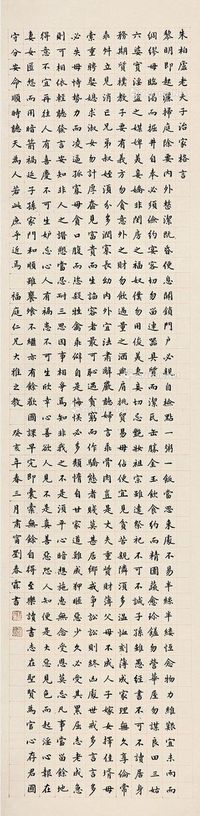 朱柏廬夫子治家格言
黎明即起灑掃庭除要內外整潔既昏便息關鎖門戶必親自檢點一粥一飯當思來處不易半絲半縷恆念物力維艱宜未雨而
綢繆毋臨渴而掘井自奉必須儉約宴客切勿留連器具質而潔瓦缶勝金玉飲食約而精園蔬愈珍饈勿營華屋勿謀良田三姑
六婆實淫盜之媒婢美妾嬌非閨房之福奴僕勿用俊美妻妾切忌豔妝祖宗雖遠祭祀不可不誠子孫雖愚經書不可不讀居身
務期質樸教子要有義方勿貪意外之財勿飲過量之酒與肩挑貿易毋佔便宜見貧苦親鄰須多溫恤刻薄成家理無久享倫常
乖舛立見消亡兄弟叔姪須分多潤寡長幼內外宜法肅辭嚴聽婦言乖骨肉豈是丈夫重資財薄父母不成人子嫁女擇佳壻毋
索重聘娶媳求淑女勿計厚奩見富貴而生諂容者最可恥遇貧窮而作驕態者賤莫甚居家戒爭訟訟則終凶處世戒多言言多
必失毋恃勢力而凌逼孤寡毋貪口腹而恣殺牲禽乖僻自是悔誤必多頹惰自甘家道難成狎暱惡少久必受其累屈志老成急
則可相依輕聽發言安知非人之譖愬當忍耐三思因事相爭焉知非我之不是須平心暗想施惠無念受恩莫忘凡事當留餘地
得意不宜再往人有喜慶不可生妒嫉心人有禍患不可生喜幸心善欲人見不是真善惡恐人知便是大惡見色而起淫心報在
妻女匿怨而用暗箭禍延子孫家門和順雖饔飧不繼亦有餘歡國課早完即囊橐無餘自得至樂讀書志在聖賢為官心存君國
守分安命順時聽天為人若此庶乎近焉 福庭仁兄大雅之教 癸亥年春三月肅甯劉春霖書